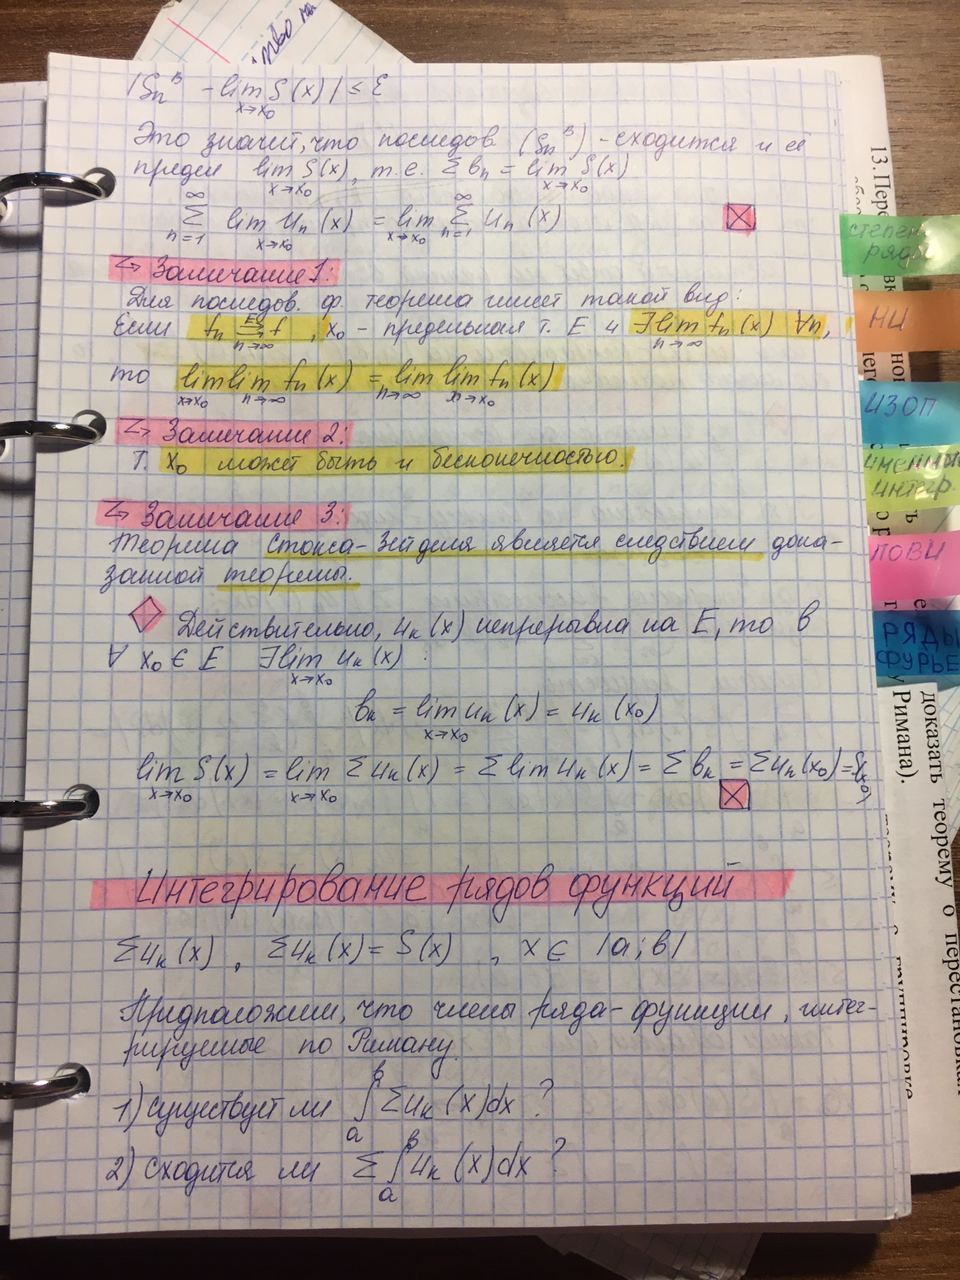 |Sₙᴮ - lim S(x)| ≤ ε
x→x₀
Это значит, что последов (Sₙᴮ) - сходится и её
предел lim S(x), т.е. Σ вₙ = lim S(x)
x→x₀ x→x₀
∞ ∞
Σ lim uₙ(x) = lim Σ uₙ(x)
n=1 x→x₀ x→x₀ n=1
↳ Замечание 1:
Для последов. ф. теорема имеет такой вид:
Если fₙ ⇉ᴱ f, x₀ - предельная т. E и ∃ lim fₙ(x) ∀n,
n→∞ n→∞
то lim lim fₙ(x) = lim lim fₙ(x)
x→x₀ n→∞ n→∞ x→x₀
↳ Замечание 2:
Т. x₀ может быть и бесконечностью.
↳ Замечание 3:
Теорема Стокса-Зейделя является следствием дока-
занной теоремы.
Действительно, uₖ(x) непрерывна на E, то в
∀ x₀ ∈ E ∃ lim uₖ(x) :
x→x₀
вₖ = lim uₖ(x) = uₖ(x₀)
x→x₀
lim S(x) = lim Σ uₖ(x) = Σ lim uₖ(x) = Σ вₖ = Σ uₖ(x₀) = S(x₀)
x→x₀ x→x₀
Интегрирование рядов функций
Σ uₖ(x) , Σ uₖ(x) = S(x) , x ∈ |a; в|
Предположим, что члены ряда - функции, интег-
рируемые по Риману.
1) существует ли ∫ₐᵇ Σ uₖ(x)dx ?
2) сходится ли Σ ∫ₐᵇ uₖ(x)dx ?
степен
ряды
НИ
ИЗОП
интегр.
ПОВИ
РЯДЫ
ФУРЬЕ
доказать теорему о перестановках
Римана).
13. Пере